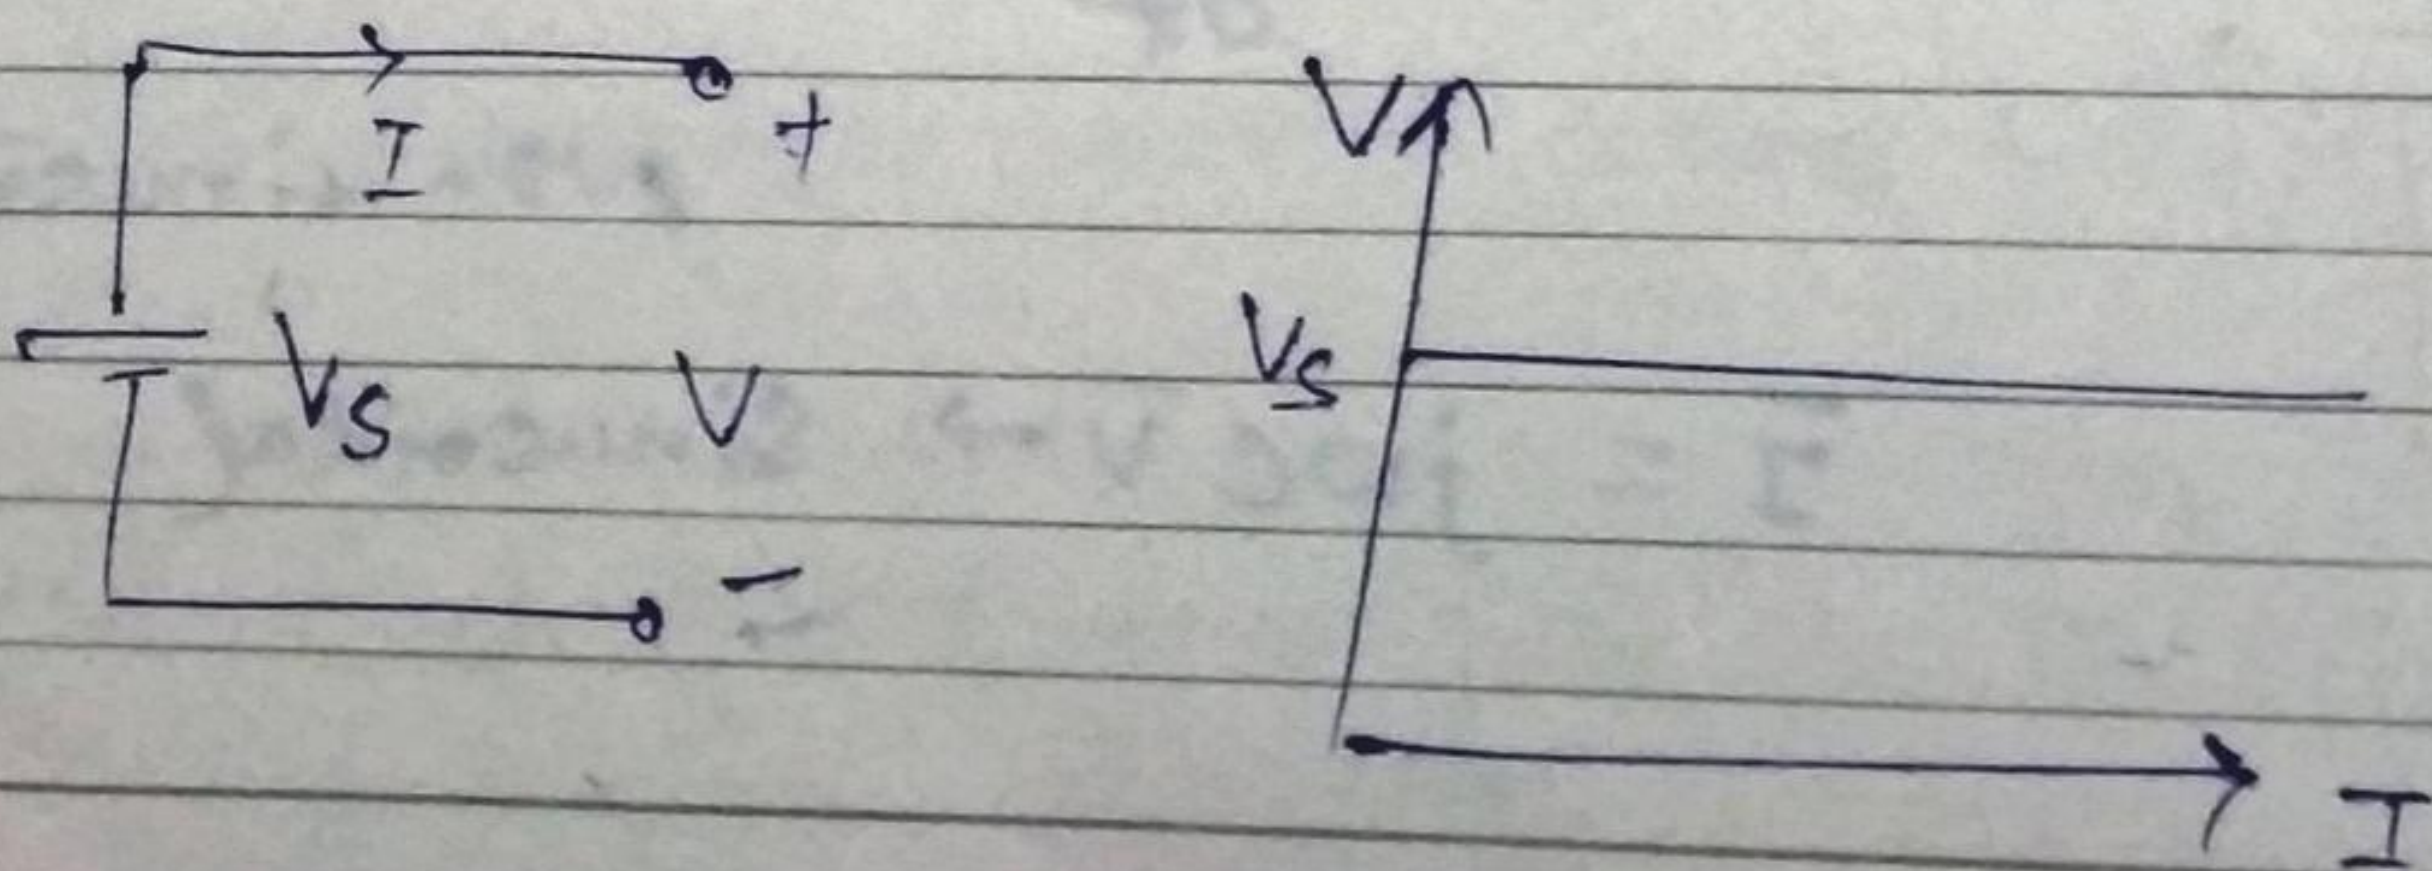 I
+
Vs
V
-
V
Vs
I